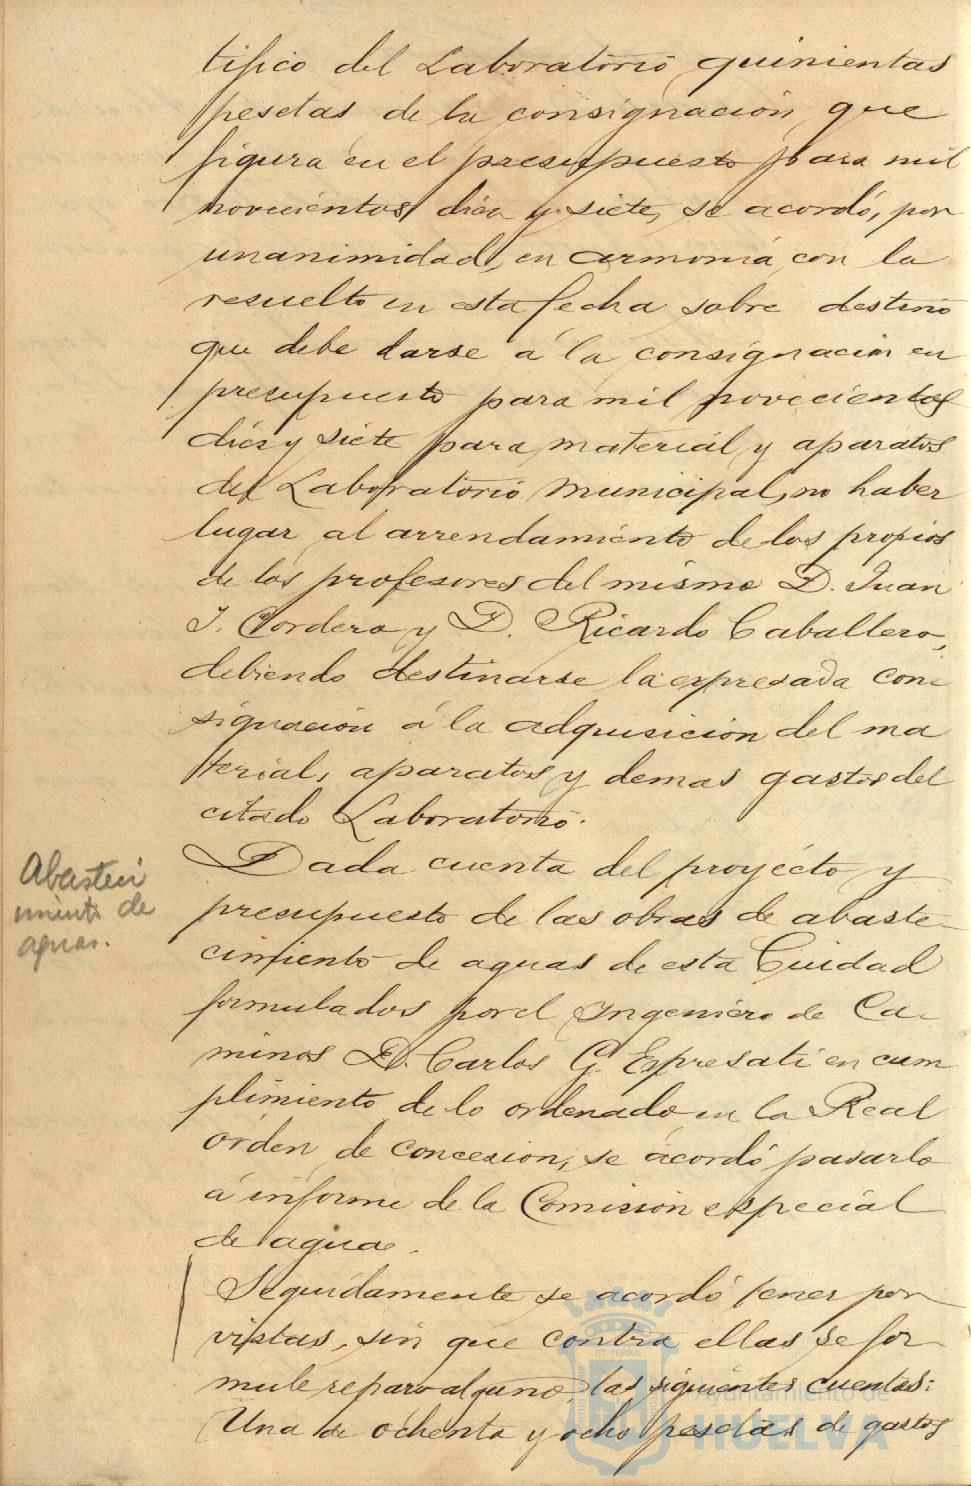 tifico del Laboratorio quinientas
pesetas de la consignación que
figura en el presupuesto para mil
novecientos diez y siete, se acordó, por
unanimidad, en armonía con lo
resuelto en esta fecha sobre destino
que debe darse á la consignación en
presupuesto para mil novecientos
diez y siete para material y aparatos
del Laboratorio Municipal, no haber
lugar al arrendamiento de los propios
de los profesores del mismo D. Juan
J. Cordero y D. Ricardo Caballero,
debiendo destinarse la expresada con-
signación á la adquisición del ma
terial, aparatos y demas gastos del
citado Laboratorio.
Abasteci
miento de
aguas.
Dada cuenta del proyecto y
presupuesto de las obras de abaste-
cimiento de aguas de esta Ciudad
formulados por el Ingeniero de Ca-
minos D. Carlos G. Espresati en cum
plimiento de lo ordenado en la Real
órden de concesion, se acordó pasarlo
á informe de la Comision especial
de aguas.
Seguidamente se acordó tener por
vistas, sin que contra ellas se for
mule reparo alguno, las siguientes cuentas:
Una de ochenta y ocho pesetas de gastos
Ayuntamiento de
HUELVA